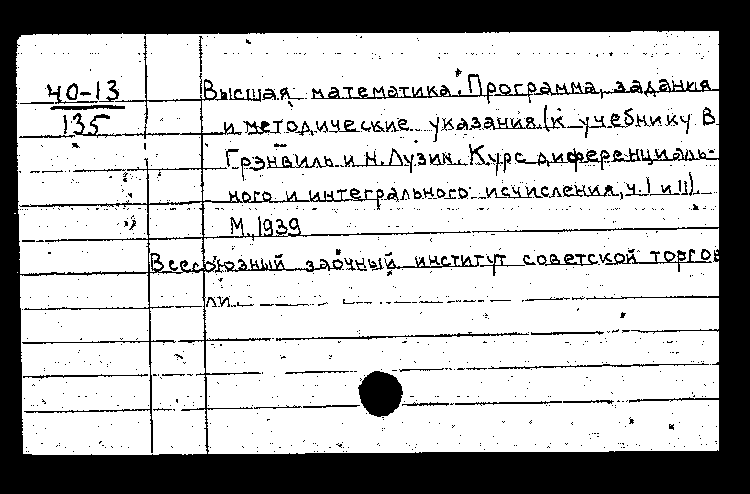 40-13
135
Высшая математика. Программа, задания
и методические указания. (к учебнику В
Грэнвиль и Н. Лузин. Курс диференциаль-
ного и интегрального исчисления, ч. I и II).
М., 1939
Всесоюзный заочный институт советской торгов
ли.